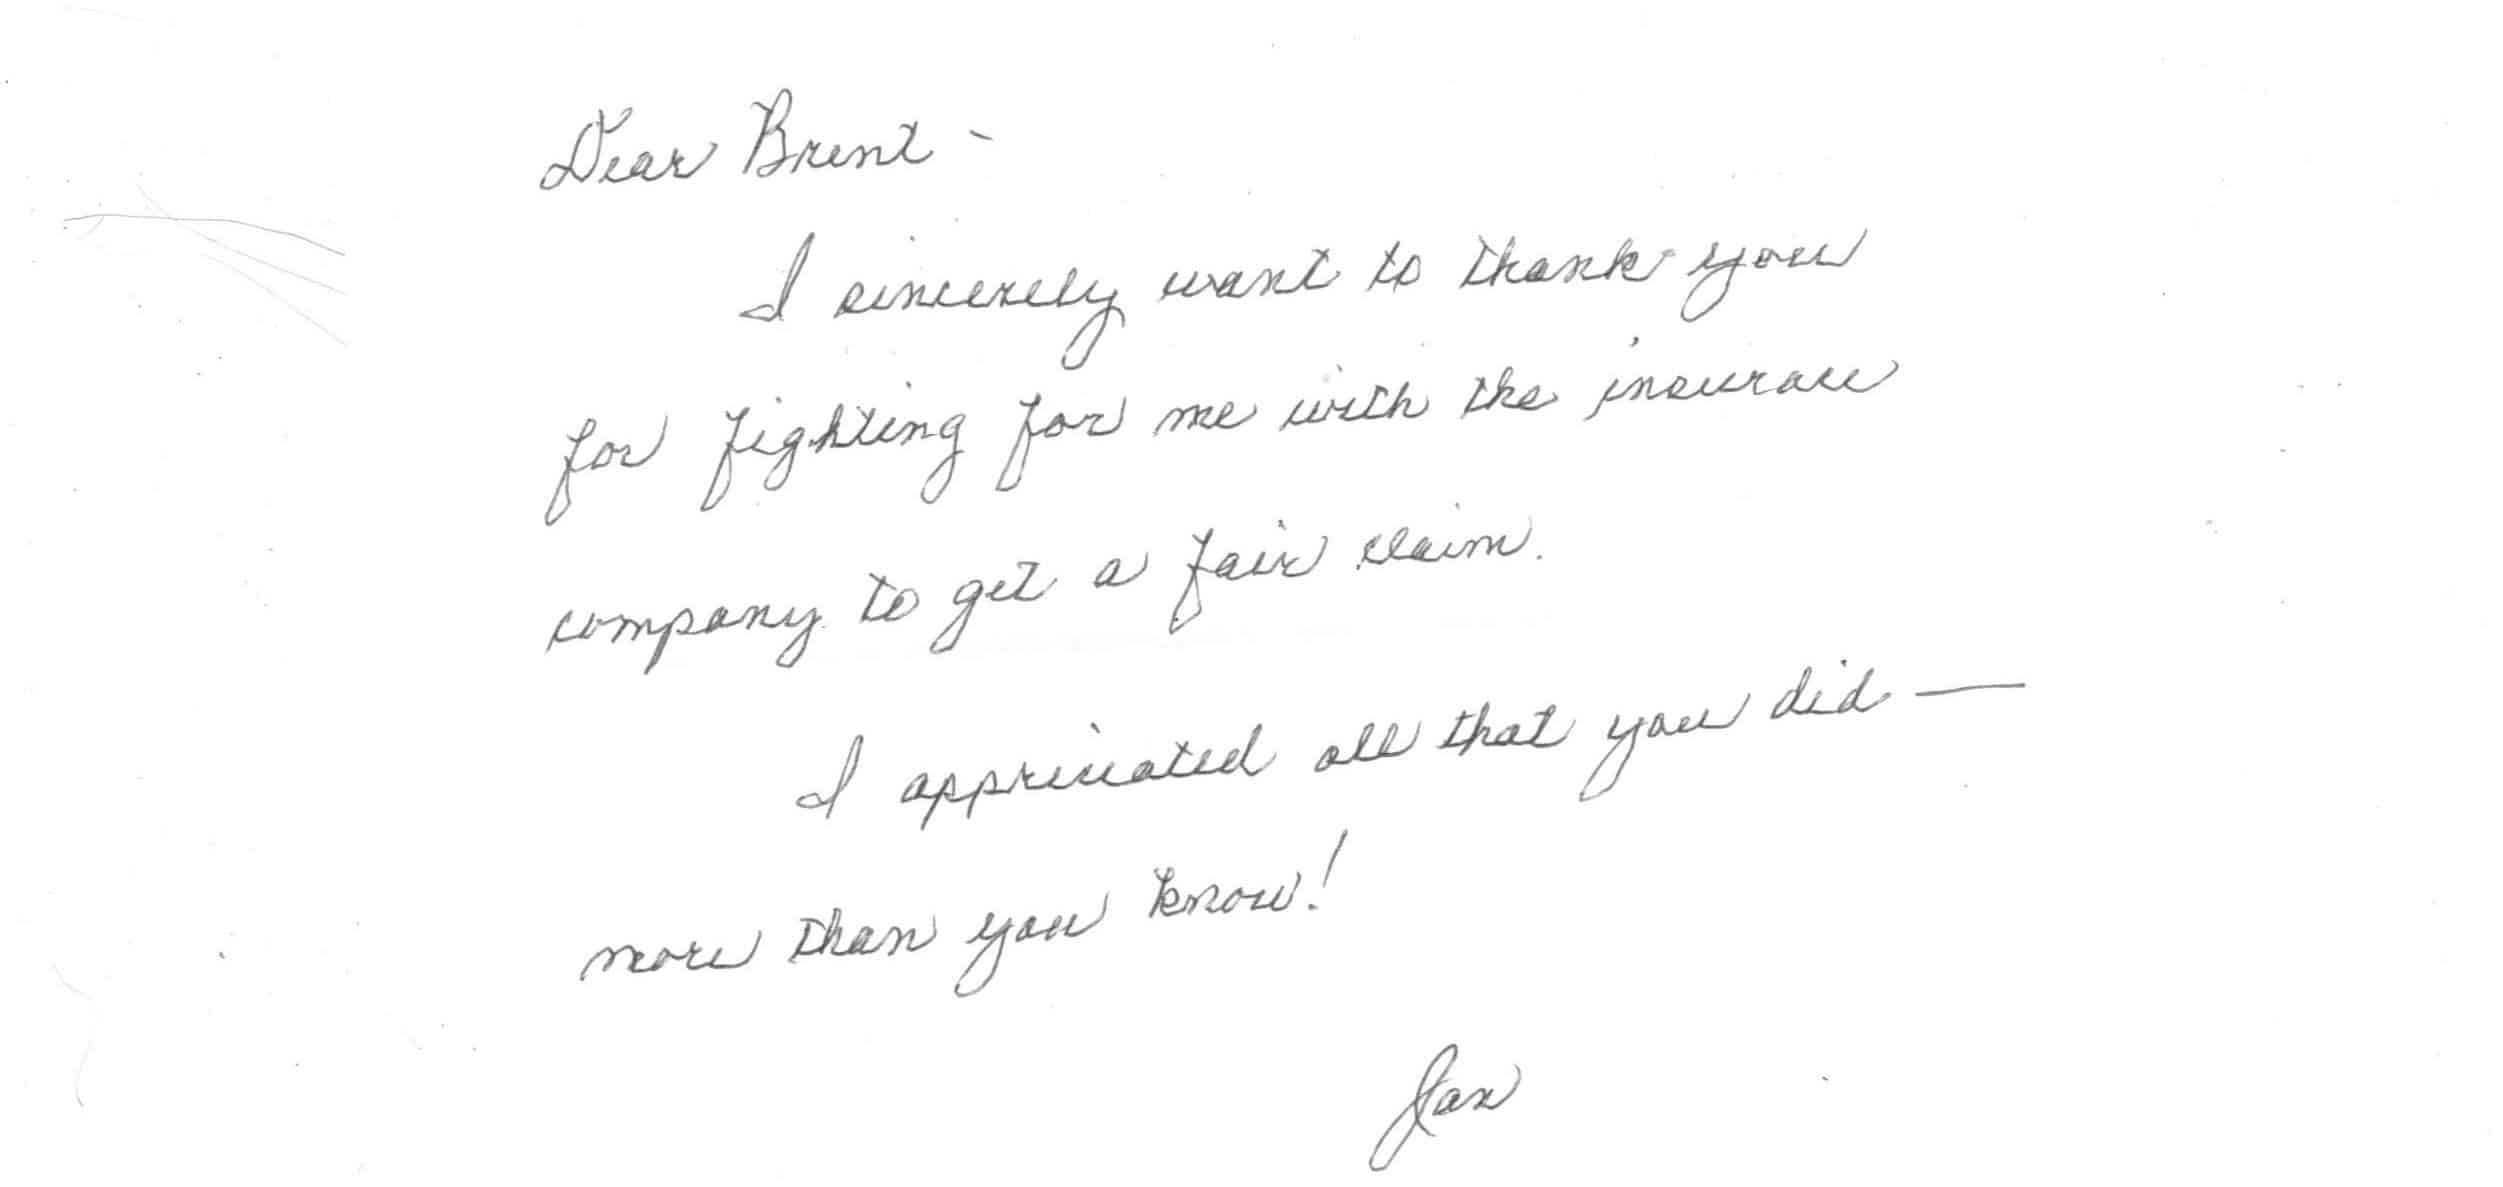 Dear Brent -
I sincerely want to thank you
for fighting for me with the insurance
company to get a fair claim.
I appreciated all that you did —
more than you know!
Jan